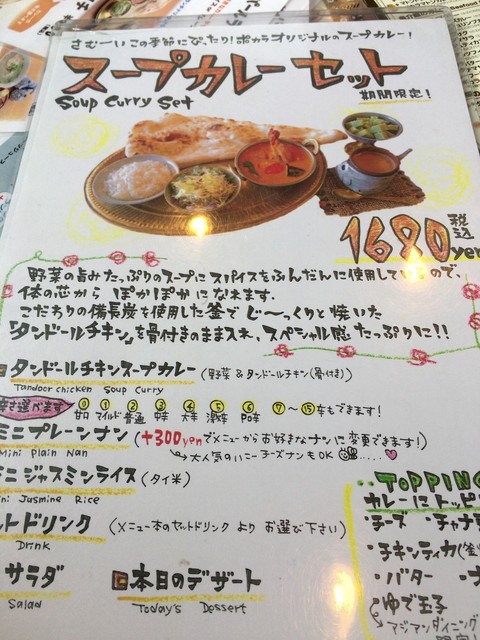 さむーいこの季節にぴったり!ポカラオリジナルのスープカレー!
スープカレーセット
Soup Curry Set
期間限定!
1680yen
税込
野菜の旨みたっぷりのスープにスパイスをふんだんに使用しているので、
体の芯から ぽかぽかになれます.
こだわりの備長炭を使用した釜でじ〜っくりと焼いた
「タンドールチキン」を骨付きのまま入れ、スペシャル感たっぷりに!!
タンドールチキンスープカレー (野菜&タンドールチキン(骨付き))
Tandoor chicken Soup Curry
辛さ選べます 0 1 2 3 4 5 6 7〜15辛もできます!
甘口 マイルド 普通 中辛 大辛 激辛 Po辛
ミニプレーンナン (+300yenでメニューからお好きなナンに変更できます!)
Mini Plain Nan 大人気のハニーチーズナンもOK
ミニジャスミンライス (タイ米)
Mini Jasmine Rice
ットドリンク (メニュー本のセットドリンクよりお選び下さい)
Drink
サラダ
Salad
本日のデザート
Today's Dessert
TOPPING
カレーにトッピ
・チーズ ・チャナ
・チキンティカ(釜
・バター
・ゆで玉子
マジマンダイニング